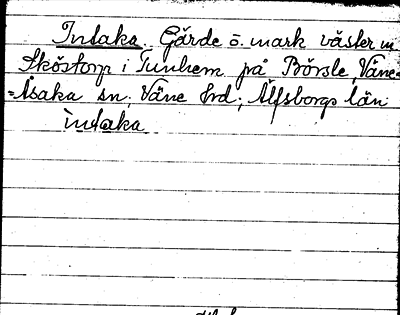 Intaka. Gärde o. mark väster om
Sköstorp i Tunhem på Börsle, Väne-
-Åsaka sn; Väne hrd; Älfsborgs län
intaka